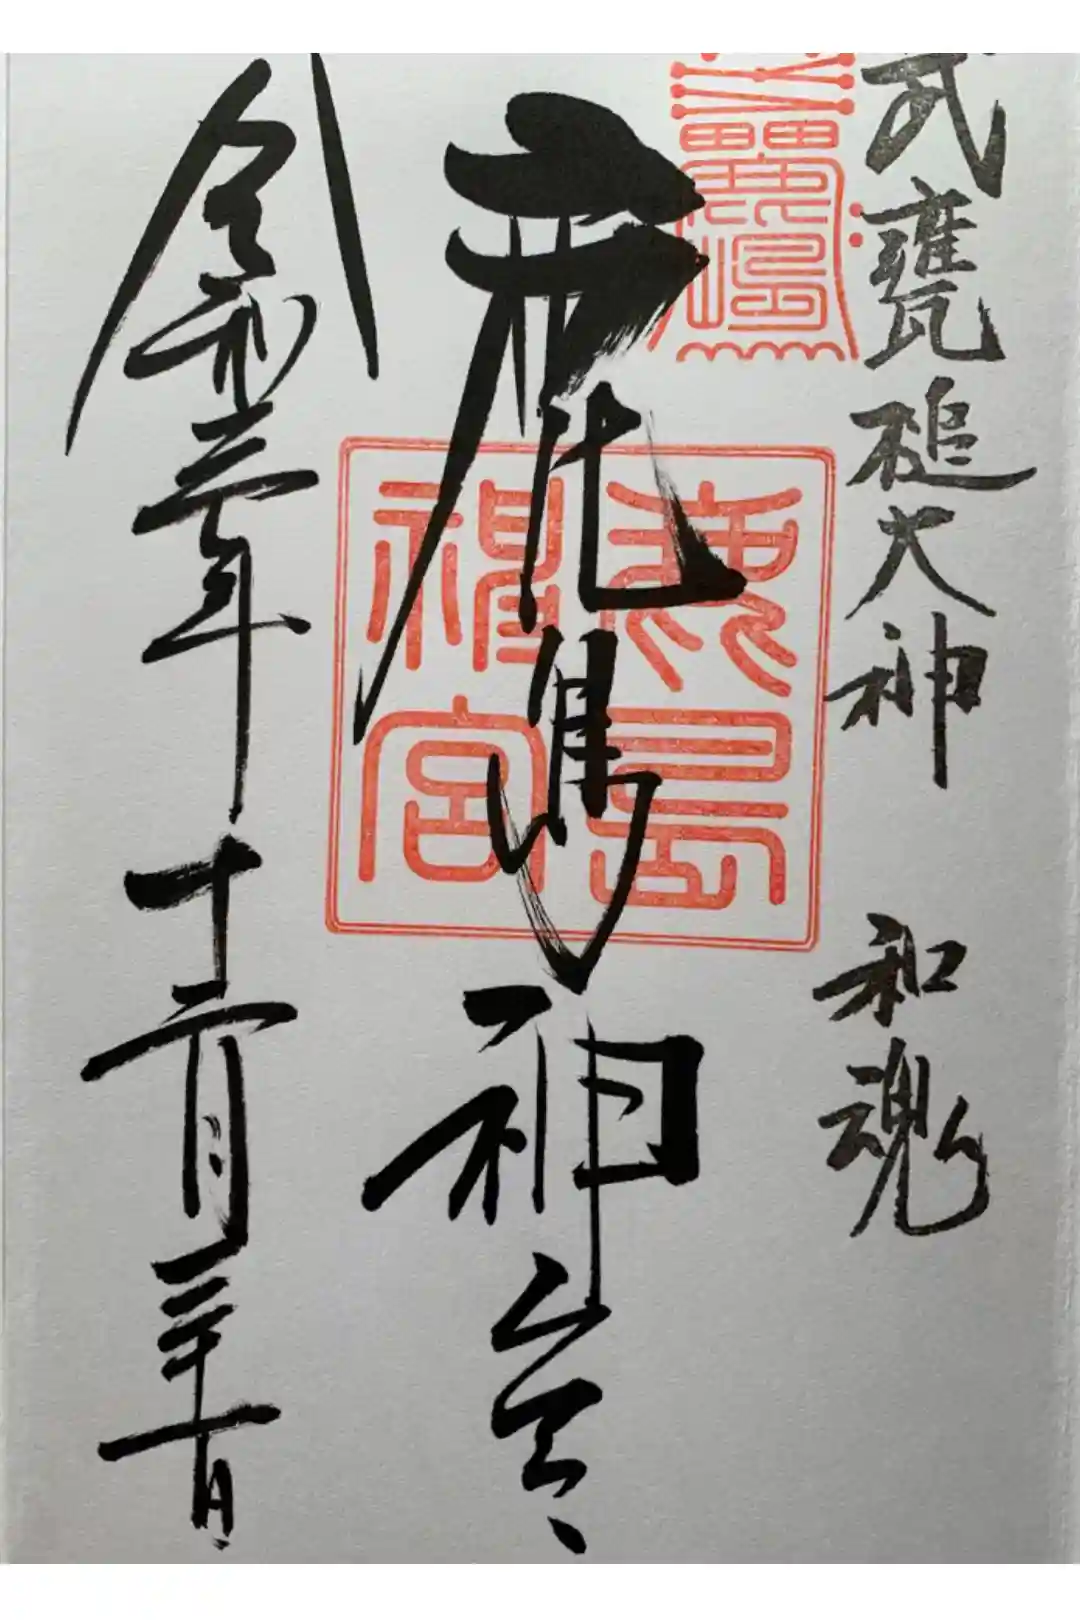 武甕槌大神 和魂
鹿島神宮
鹿島
神宮
令和三年十二月三十一日